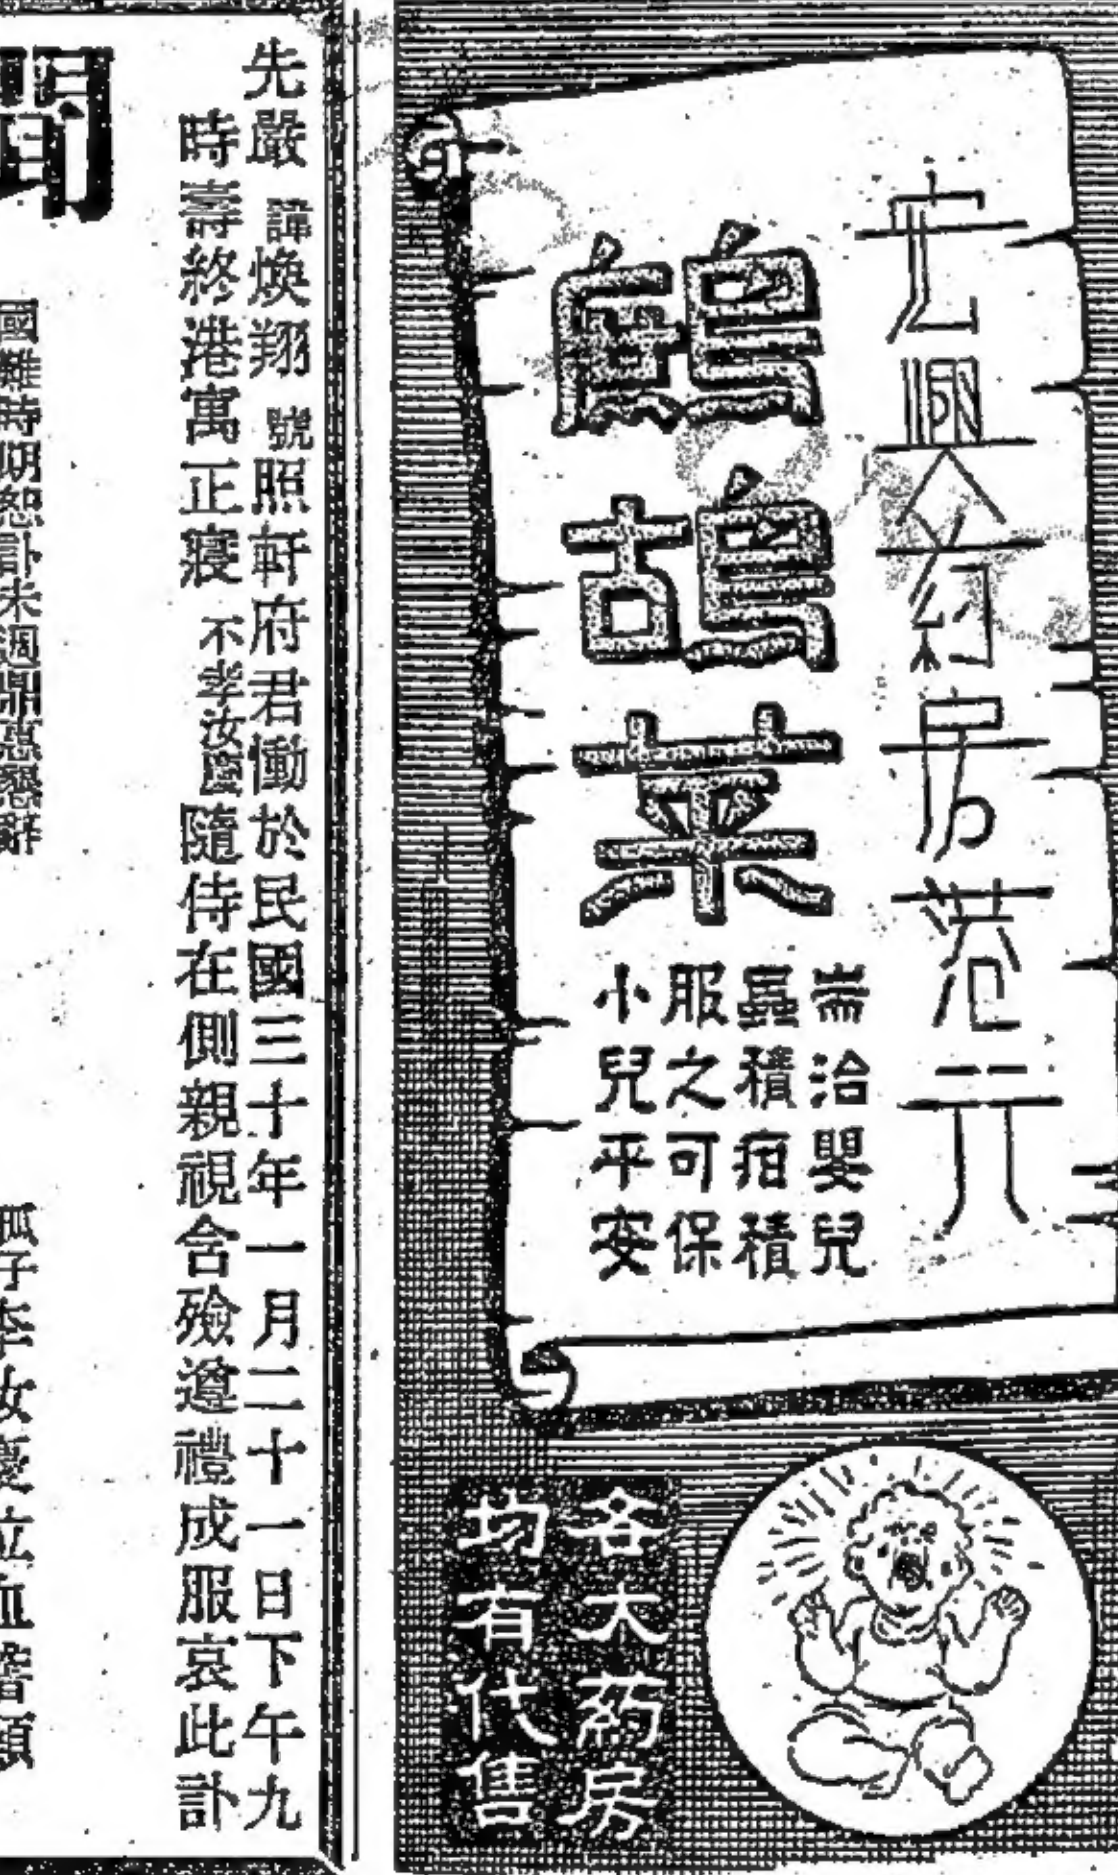 鷓鴣菜
耑治嬰兒
蟲積疳積
服之可保
小兒平安
各大葯房
均有代售
先嚴 諱煥翔 號照軒府君慟於民國三十年一月二十一日下午九
時壽終港寓正寢 不孝汝慶隨侍在側親視含殮遵禮成服哀此訃
聞
國難時期恕訃未週鼎惠懇辭
孤子李汝慶泣血稽顙